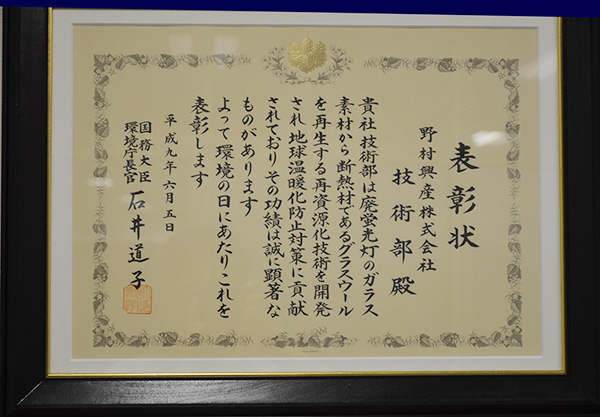 表彰状
野村興産株式会社
技術部殿
貴社技術部は廃蛍光灯のガラス
素材から断熱材であるグラスウール
を再生する再資源化技術を開発
され地球温暖化防止対策に貢献
されておりその功績は誠に顕著な
ものがあります
よって環境の日にあたりこれを
表彰します
平成九年六月五日
国務大臣
環境庁長官 石井道子